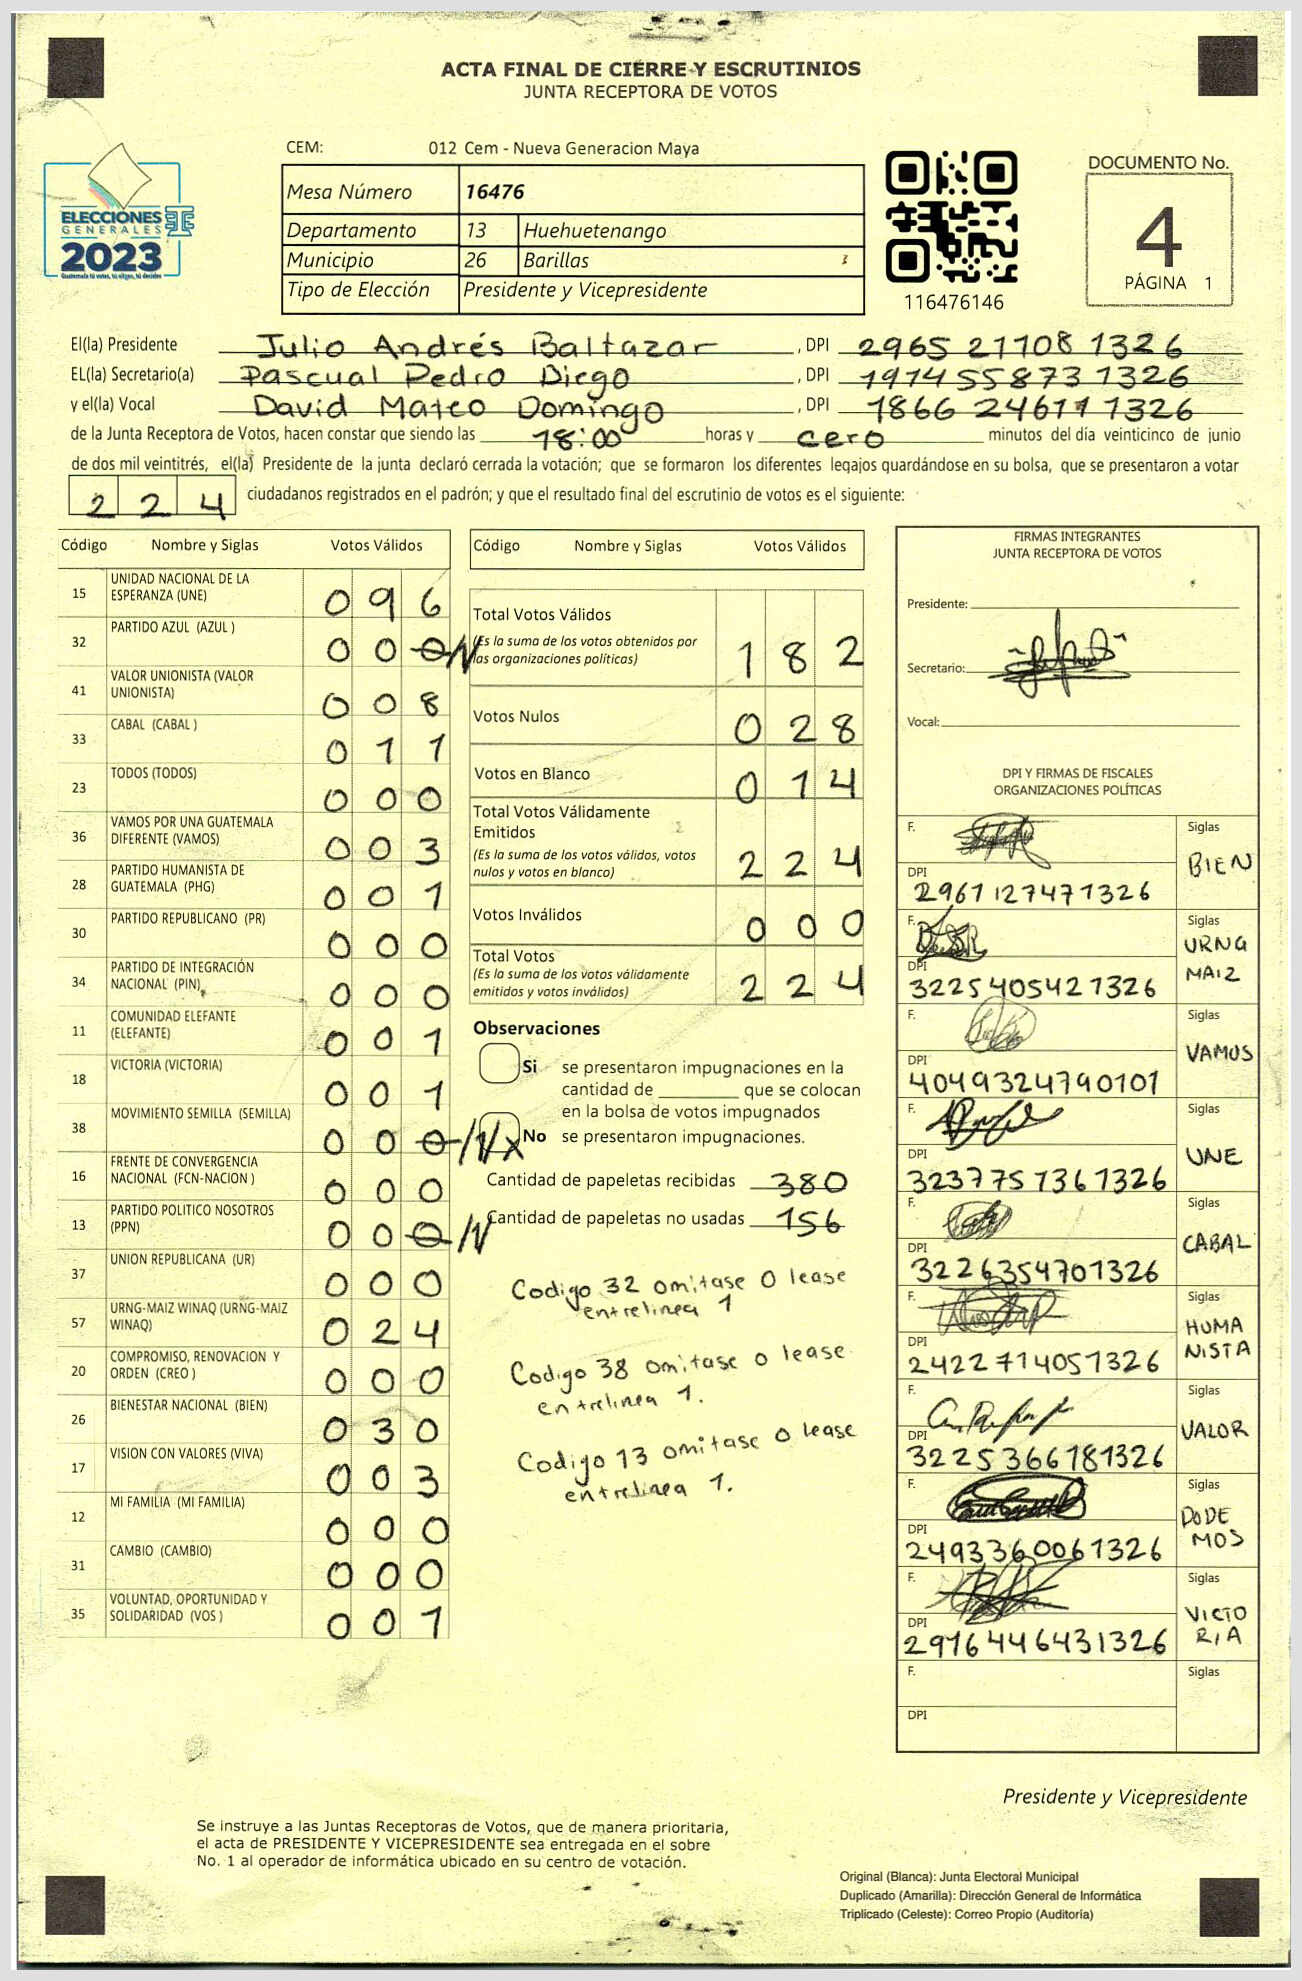 ACTA FINAL DE CIERRE Y ESCRUTINIOS
JUNTA RECEPTORA DE VOTOS
CEM: 012 Cem - Nueva Generacion Maya
DOCUMENTO No.
4
PÁGINA 1
ELECCIONES
GENERALES
2023
Guatemala tú votas, tú eliges, tú decides
Mesa Número 16476
Departamento 13 Huehuetenango
Municipio 26 Barillas
Tipo de Elección Presidente y Vicepresidente
116476146
El(la) Presidente Julio Andrés Baltazar , DPI 2965 21108 1326
EL(la) Secretario(a) Pascual Pedro Diego , DPI 1914 55873 1326
y el(la) Vocal David Mateo Domingo , DPI 1866 24611 1326
de la Junta Receptora de Votos, hacen constar que siendo las 18:00 horas y cero minutos del día veinticinco de junio
de dos mil veintitrés, el(la) Presidente de la junta declaró cerrada la votación; que se formaron los diferentes legajos guardándose en su bolsa, que se presentaron a votar
2 2 4 ciudadanos registrados en el padrón; y que el resultado final del escrutinio de votos es el siguiente:
Código Nombre y Siglas Votos Válidos
15 UNIDAD NACIONAL DE LA ESPERANZA (UNE) 0 9 6
32 PARTIDO AZUL (AZUL ) 0 0 0 /1/
41 VALOR UNIONISTA (VALOR UNIONISTA) 0 0 8
33 CABAL (CABAL ) 0 1 1
23 TODOS (TODOS) 0 0 0
36 VAMOS POR UNA GUATEMALA DIFERENTE (VAMOS) 0 0 3
28 PARTIDO HUMANISTA DE GUATEMALA (PHG) 0 0 1
30 PARTIDO REPUBLICANO (PR) 0 0 0
34 PARTIDO DE INTEGRACIÓN NACIONAL (PIN) 0 0 0
11 COMUNIDAD ELEFANTE (ELEFANTE) 0 0 1
18 VICTORIA (VICTORIA) 0 0 1
38 MOVIMIENTO SEMILLA (SEMILLA) 0 0 0 /1/
16 FRENTE DE CONVERGENCIA NACIONAL (FCN-NACION ) 0 0 0
13 PARTIDO POLITICO NOSOTROS (PPN) 0 0 0 /1/
37 UNION REPUBLICANA (UR) 0 0 0
57 URNG-MAIZ WINAQ (URNG-MAIZ WINAQ) 0 2 4
20 COMPROMISO, RENOVACION Y ORDEN (CREO ) 0 0 0
26 BIENESTAR NACIONAL (BIEN) 0 3 0
17 VISION CON VALORES (VIVA) 0 0 3
12 MI FAMILIA (MI FAMILIA) 0 0 0
31 CAMBIO (CAMBIO) 0 0 0
35 VOLUNTAD, OPORTUNIDAD Y SOLIDARIDAD (VOS ) 0 0 1
Código Nombre y Siglas Votos Válidos
Total Votos Válidos 1 8 2
(Es la suma de los votos obtenidos por
las organizaciones políticas)
Votos Nulos 0 2 8
Votos en Blanco 0 1 4
Total Votos Válidamente
Emitidos 2 2 4
(Es la suma de los votos válidos, votos
nulos y votos en blanco)
Votos Inválidos 0 0 0
Total Votos 2 2 4
(Es la suma de los votos válidamente
emitidos y votos inválidos)
Observaciones
Si se presentaron impugnaciones en la
cantidad de ________ que se colocan
en la bolsa de votos impugnados
x No se presentaron impugnaciones.
Cantidad de papeletas recibidas 380
Cantidad de papeletas no usadas 156
Codigo 32 omitase 0 lease
entrelinea 1
Codigo 38 omitase 0 lease
entrelinea 1.
Codigo 13 omitase 0 lease
entrelinea 1.
FIRMAS INTEGRANTES
JUNTA RECEPTORA DE VOTOS
Presidente:
Secretario:
Vocal:
DPI Y FIRMAS DE FISCALES
ORGANIZACIONES POLÍTICAS
F. Siglas
BIEN
DPI
2961 127471326
F. Siglas
URNG
MAIZ
DPI
3225405421326
F. Siglas
VAMOS
DPI
4049324790101
F. Siglas
UNE
DPI
3237751361326
F. Siglas
CABAL
DPI
3226354701326
F. Siglas
HUMA
NISTA
DPI
2422714051326
F. Siglas
VALOR
DPI
3225366181326
F. Siglas
PODE
MOS
DPI
2493360061326
F. Siglas
VICTO
RIA
DPI
2916446431326
F. Siglas
DPI
Presidente y Vicepresidente
Se instruye a las Juntas Receptoras de Votos, que de manera prioritaria,
el acta de PRESIDENTE Y VICEPRESIDENTE sea entregada en el sobre
No. 1 al operador de informática ubicado en su centro de votación.
Original (Blanca): Junta Electoral Municipal
Duplicado (Amarilla): Dirección General de Informática
Triplicado (Celeste): Correo Propio (Auditoría)